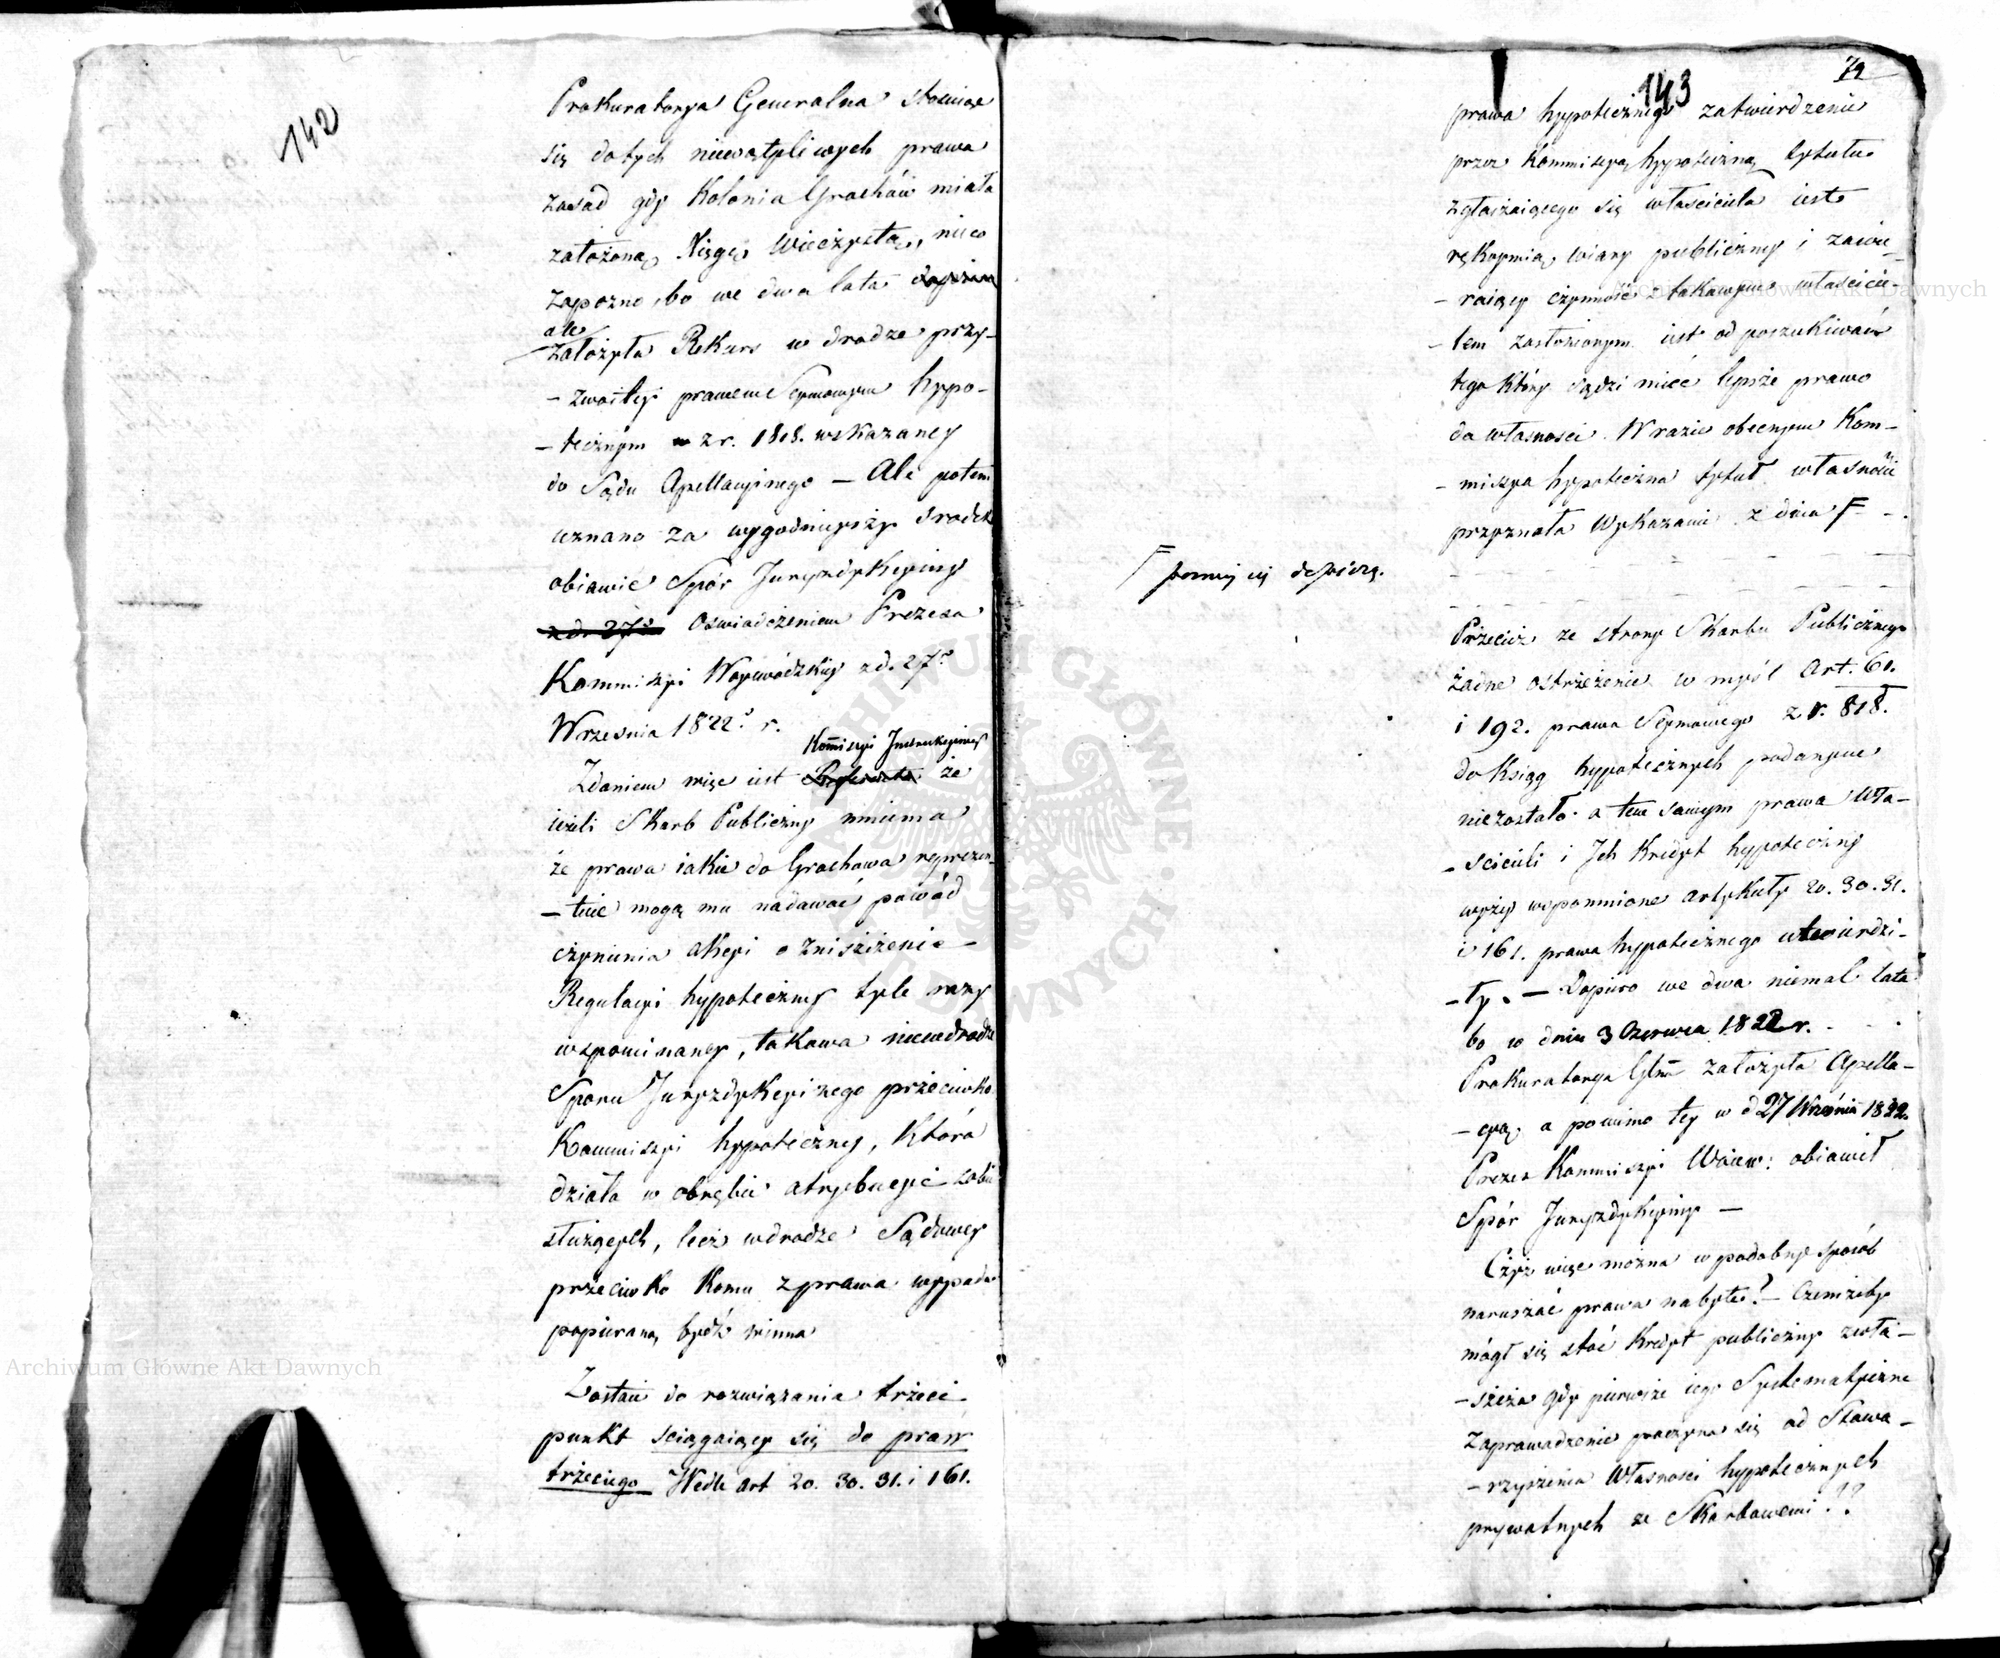 142
Prokuratorya Generalna stosuiąc
się do tych niewątpliwych prawa
zasad gdy Kolonia Grochów miała
założoną Xięgę Wieczystą, nieco
zapozno, bo we dwa lata dopiero
ale
założyła Rekurs w drodze przy-
-zwoitey prawem Seymowym hypo-
-tecznym z r. 1818. wskazaney
do Sądu Apellacyinego — Ale potem
uznano za wygodnieyszy srodek
obiawić Spór Juryzdykcyiny
z d. 27o Oswiadczeniem Prezesa
Kommiszyi Woiewódzkiey z d. 27o
Wrzesnia 1822o r.
Kommiszyi Instrukcyiney
Zdaniem więc iest Referenta że
ieżeli Skarb Publiczny mniema
że prawa iakie do Grochowa reprezen-
-tuie mogą mu nadawać powód
czynienia akcyi o zniszczenie
Regulacyi hypoteczney tyle razy
wspominaney, takowa nie w drodze
Sporu Juryzdykcyinego przeciwko
Kommiszyi hypoteczney, która
działa w obrębie atrybucyi sobie
służących, lecz w drodze Sądowey
przeciwko komu z prawa wypada
popieraną bydź winna
Zostaie do rozwiązania trzeci
punkt sciągaiący się do praw
trzeciego Wedle art 20. 30. 31. i 161.
143
72
prawa hypotecznego zatwierdzenie
przez Kommiszyą hypoteczną tytułu
zgłaszaiącego się własciciela iest
rękoymią wiary publiczney i zawie-
-raiący czynność z takowym włascicie-
-lem zasłonionym iest od poszukiwań
tego który sądzi mieć lepsze prawo
do własnosci. W razie obecnym Kom-
-miszya hypoteczna tytuł własnosci
przyznała Wykazani z dnia F
F
Przecież ze strony Skarbu Publicznego
żadne ostrzeżenie w myśl Art. 61.
i 192. prawa Seymowego z r. 818.
do Xiąg hypotecznych podanym
niezostało a tem samym prawa Wła-
-scicieli i Ich Kredyt hypoteczny
wyżey wspomnione artykuły 20. 30. 31.
i 161. prawa hypotecznego utwierdzi-
-ły. — Dopiero we dwa niemal lata
bo w dniu 3 Czerwca 1822 r.
Prokuratorya Glna założyła Apella-
-cyą, a pomimo tey w d 27 Wrześnie 1822.
Prezes Kommiszyi Woiew: obiawił
Spór Juryzdykcyiny —
Czyż więc można w podobny sposób
naruszać prawa nabyte? — Czemżeby
mógł się stać Kredyt publiczny zwła-
-szcza gdy pierwsze iego Systematyczne
Zaprowadzenie poczyna się od Stowa-
-rzyszenia Własnosci hypotecznych
prywatnych ze Skarbowemi. ??
Archiwum Główne Akt Dawnych
Archiwum Główne Akt Dawnych
ARCHIWUM GŁÓWNE AKT DAWNYCH